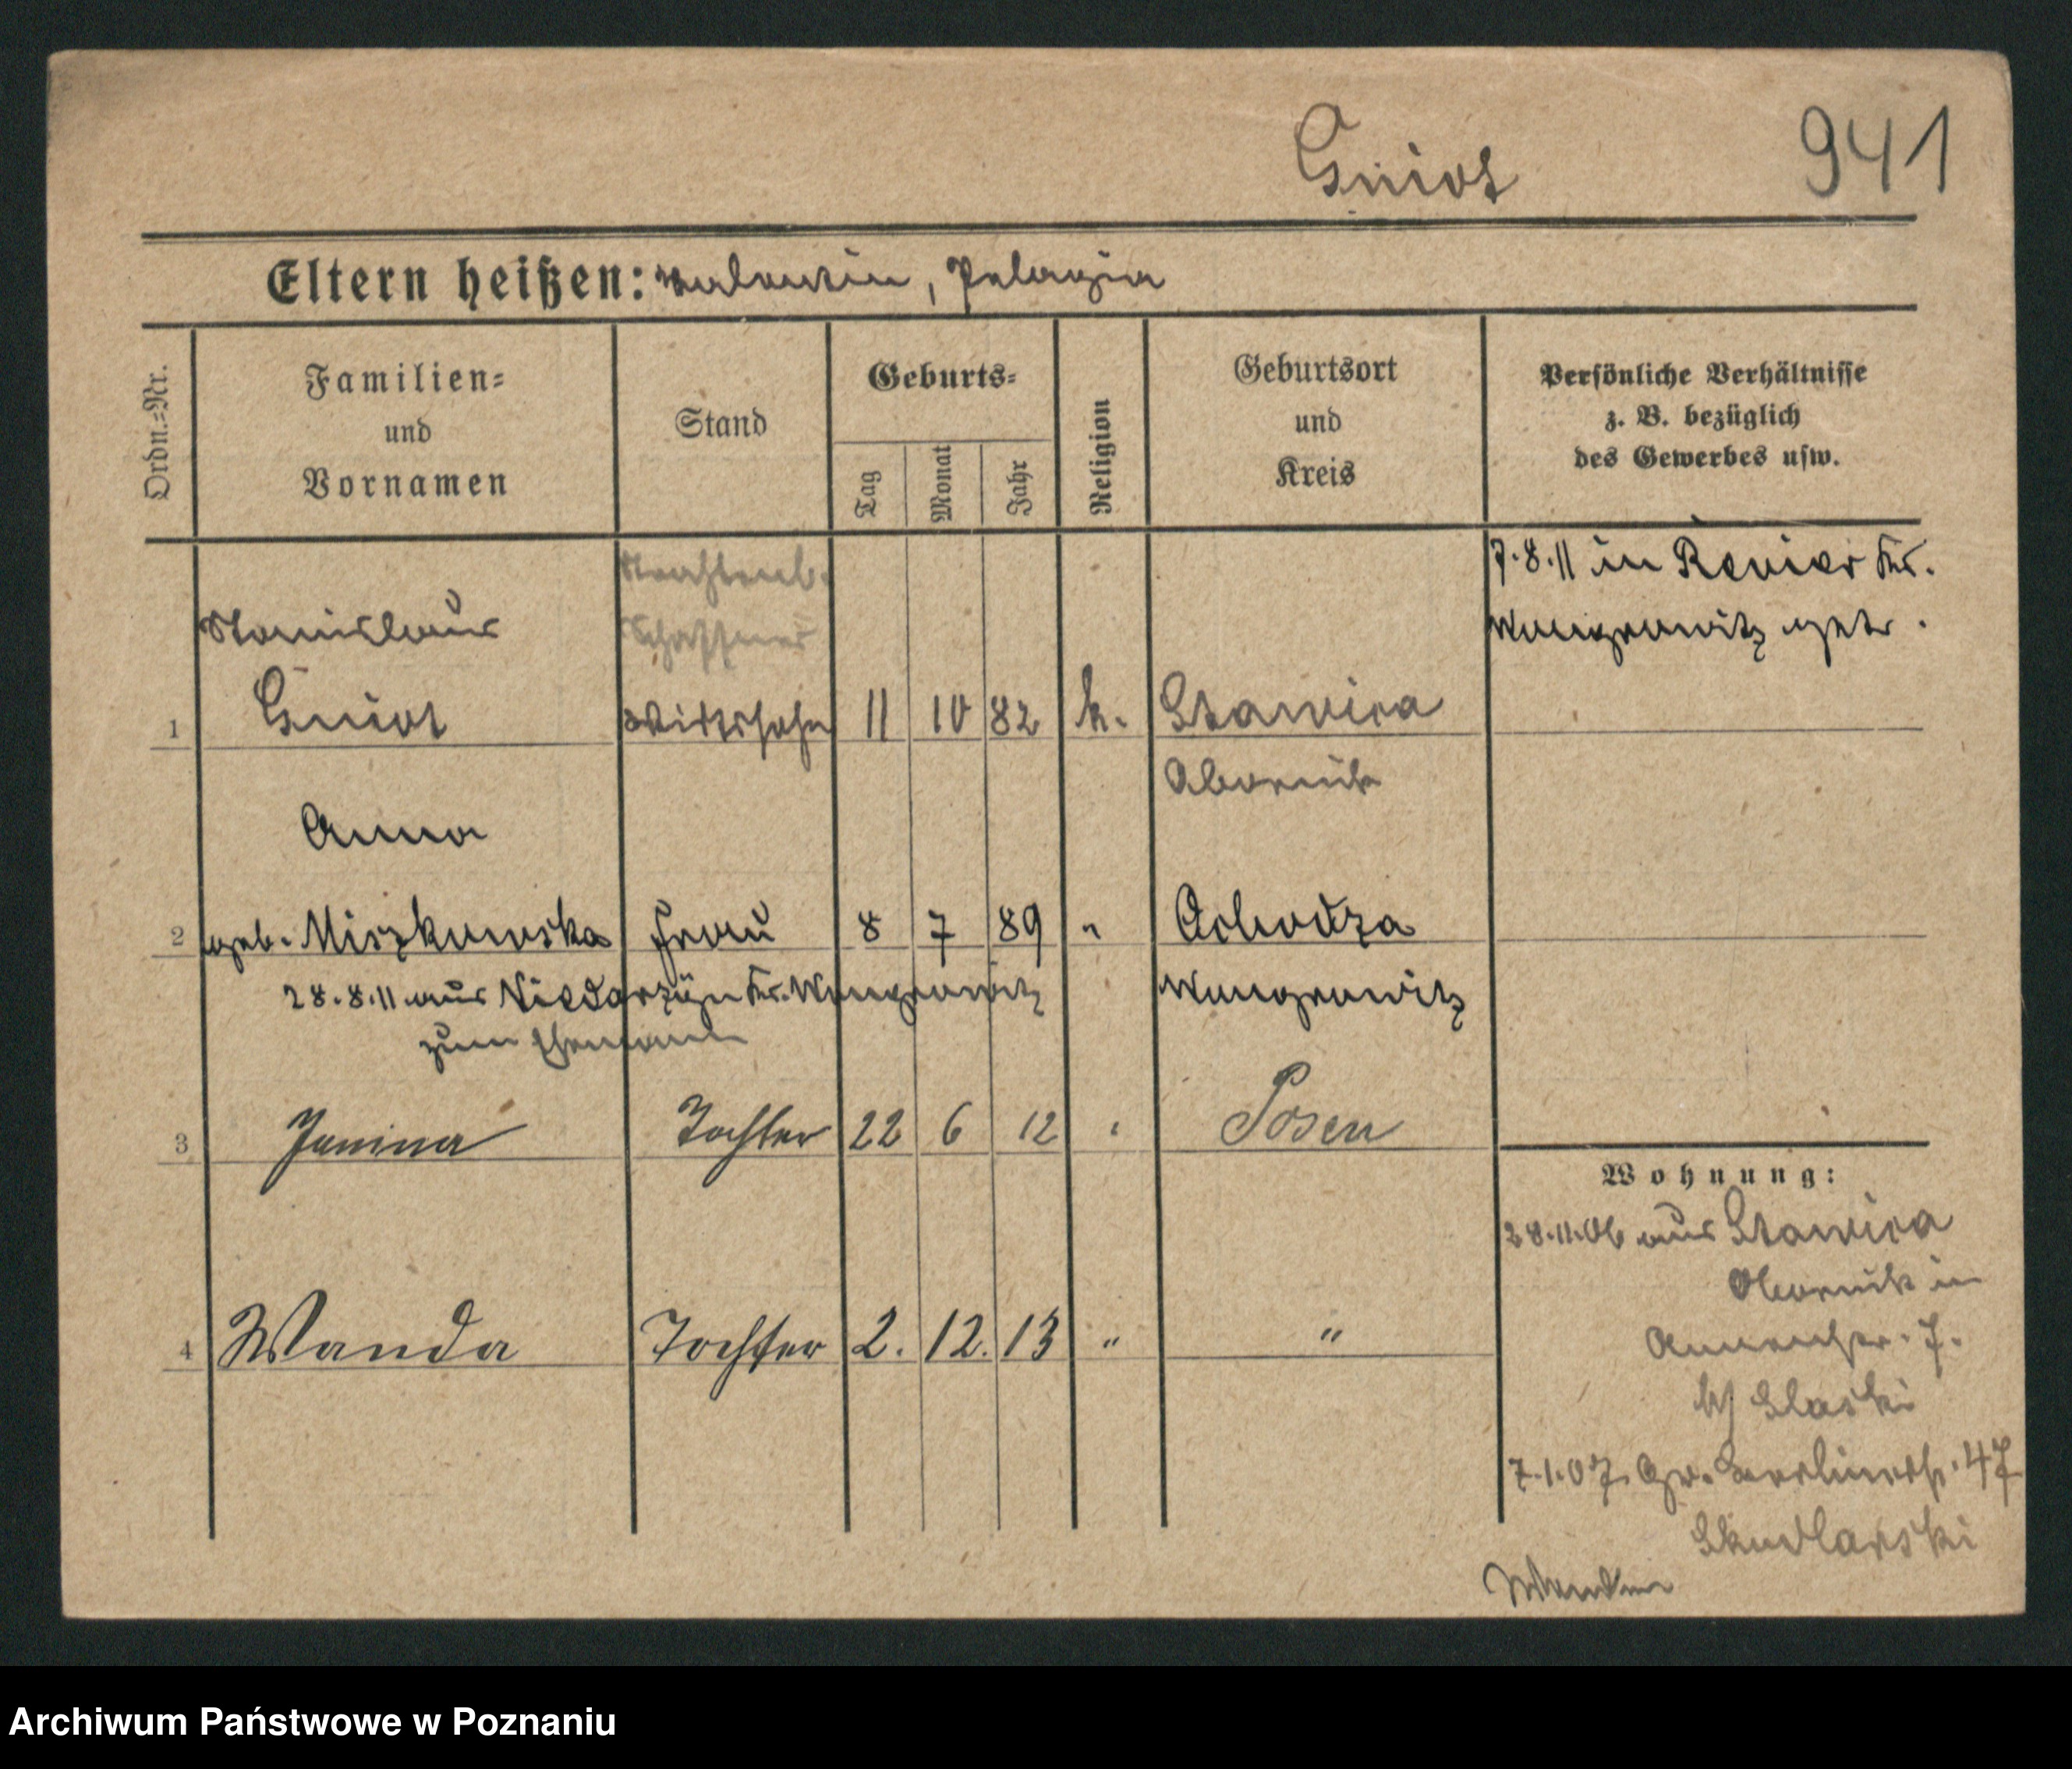 Gniot 941
Eltern heißen: Valentin, Pelagia
Ordn.=Nr.
Familien=
und
Vornamen
Stand
Geburts=
Tag
Monat
Jahr
Religion
Geburtsort
und
Kreis
Persönliche Verhältnisse
z. B. bezüglich
des Gewerbes usw.
7.8.11 in Revier Kr.
Wongrowitz getr.
Stanislaus
Schaffner
1 Gniot Wirtssohn 11 10 82 k. Stawica
Obornik
Anna
2 geb. Miszkowska Frau 8 7 89 "
Wongrowitz
28.8.11 aus Kr. Wongrowitz
zum Ehemann
3 Janina Tochter 22 6 12 Posen
4 Wanda Tochter 2. 12. 13 " "
Wohnung:
28.11.06 aus Stawica
Obornik in
7.
b/ Slaski
7.1.07. Gr. Berlinerstr. 47
Skudlarski
Archiwum Państwowe w Poznaniu